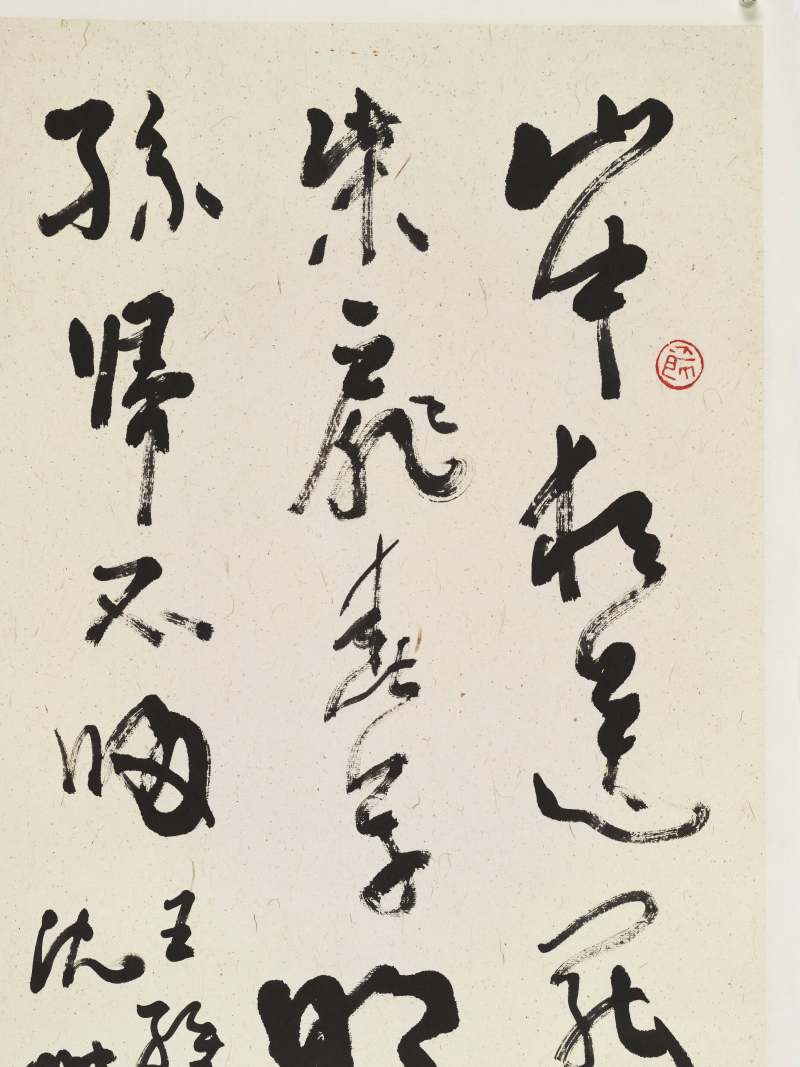 山中相送罷
柴扉春草明
孫歸不歸
王維
沈